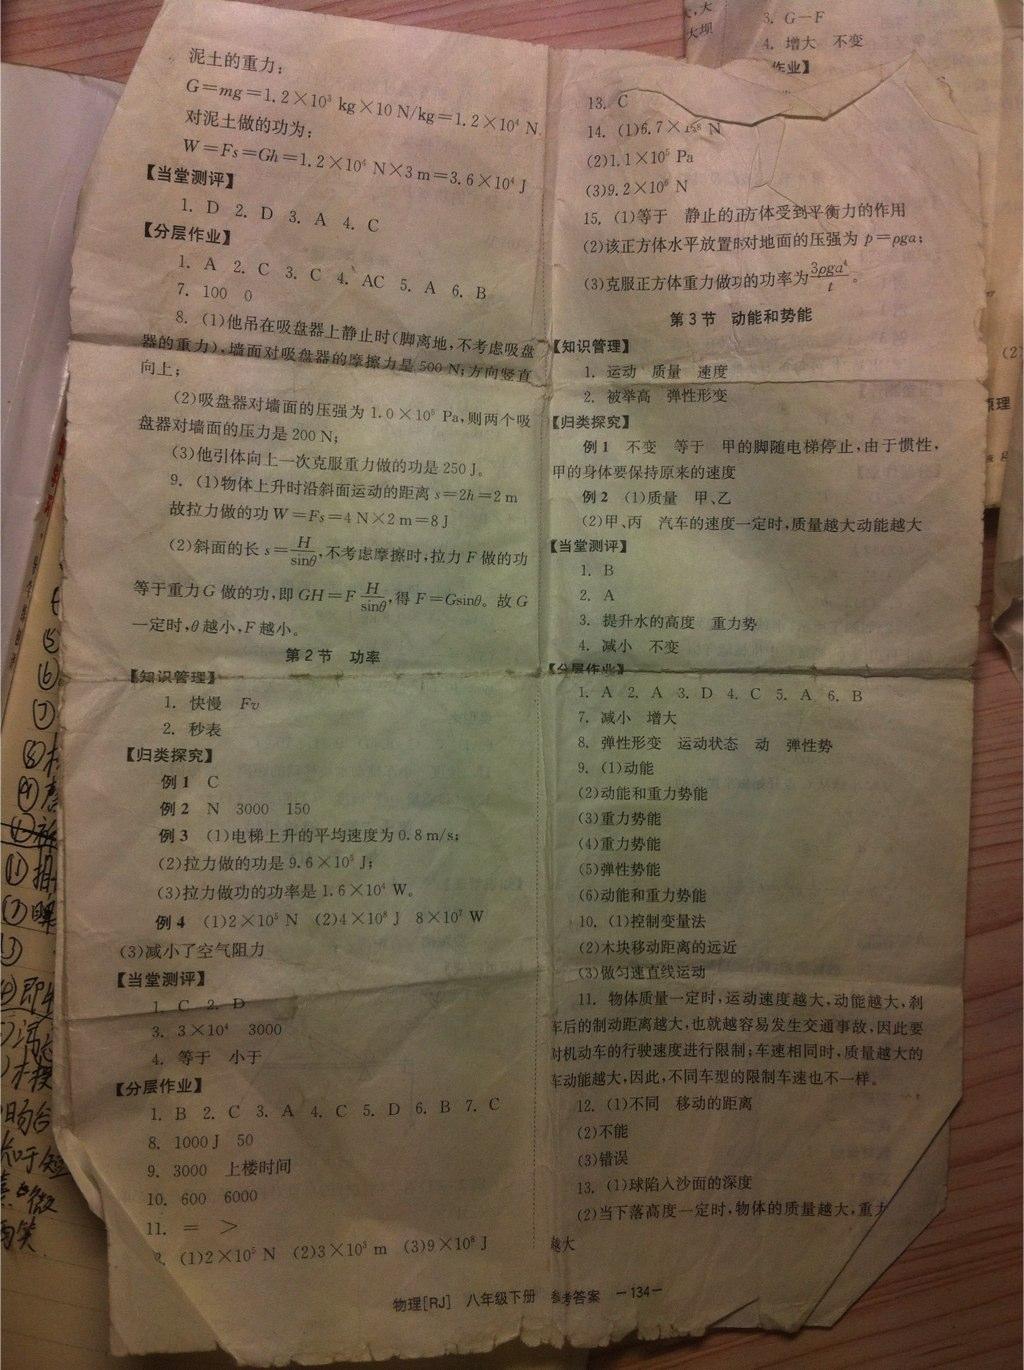 泥土的重力:
G=mg=1.2×10³ kg×10 N/kg=1.2×10⁴ N
对泥土做的功为:
W=Fs=Gh=1.2×10⁴ N×3 m=3.6×10⁴ J
【当堂测评】
1. D 2. D 3. A 4. C
【分层作业】
1. A 2. C 3. C 4. AC 5. A 6. B
7. 100 0
8. (1)他吊在吸盘器上静止时(脚离地,不考虑吸盘
器的重力),墙面对吸盘器的摩擦力是500 N;方向竖直
向上;
(2)吸盘器对墙面的压强为1.0×10⁵ Pa,则两个吸
盘器对墙面的压力是200 N;
(3)他引体向上一次克服重力做的功是250 J。
9. (1)物体上升时沿斜面运动的距离s=2h=2 m
故拉力做的功W=Fs=4 N×2 m=8 J
(2)斜面的长s=H/sinθ,不考虑摩擦时,拉力F做的功
等于重力G做的功,即GH=F H/sinθ,得F=Gsinθ。故G
一定时,θ越小,F越小。
第2节 功率
【知识管理】
1. 快慢 Fv
2. 秒表
【归类探究】
例1 C
例2 N 3000 150
例3 (1)电梯上升的平均速度为0.8 m/s;
(2)拉力做的功是9.6×10⁵ J;
(3)拉力做功的功率是1.6×10⁴ W。
例4 (1)2×10⁵ N (2)4×10⁸ J 8×10⁷ W
(3)减小了空气阻力
【当堂测评】
1. C 2. D
3. 3×10⁴ 3000
4. 等于 小于
【分层作业】
1. B 2. C 3. A 4. C 5. D 6. B 7. C
8. 1000 J 50
9. 3000 上楼时间
10. 600 6000
11. = >
(1)2×10⁵ N (2)3×10³ m (3)9×10⁸ J
13. C
14. (1)6.7× N
(2)1.1×10⁵ Pa
(3)9.2×10⁶ N
15. (1)等于 静止的正方体受到平衡力的作用
(2)该正方体水平放置时对地面的压强为p=ρga;
(3)克服正方体重力做功的功率为3ρga⁴/t。
第3节 动能和势能
【知识管理】
1. 运动 质量 速度
2. 被举高 弹性形变
【归类探究】
例1 不变 等于 甲的脚随电梯停止,由于惯性,
甲的身体要保持原来的速度
例2 (1)质量 甲、乙
(2)甲、丙 汽车的速度一定时,质量越大动能越大
【当堂测评】
1. B
2. A
3. 提升水的高度 重力势
4. 减小 不变
【分层作业】
1. A 2. A 3. D 4. C 5. A 6. B
7. 减小 增大
8. 弹性形变 运动状态 动 弹性势
9. (1)动能
(2)动能和重力势能
(3)重力势能
(4)重力势能
(5)弹性势能
(6)动能和重力势能
10. (1)控制变量法
(2)木块移动距离的远近
(3)做匀速直线运动
11. 物体质量一定时,运动速度越大,动能越大,刹
车后的制动距离越大,也就越容易发生交通事故,因此要
对机动车的行驶速度进行限制;车速相同时,质量越大的
车动能越大,因此,不同车型的限制车速也不一样。
12. (1)不同 移动的距离
(2)不能
(3)错误
13. (1)球陷入沙面的深度
(2)当下落高度一定时,物体的质量越大,重力
越大
物理[RJ] 八年级下册 参考答案 —134—
3. G-F
4. 增大 不变
作业】
大坝
原理